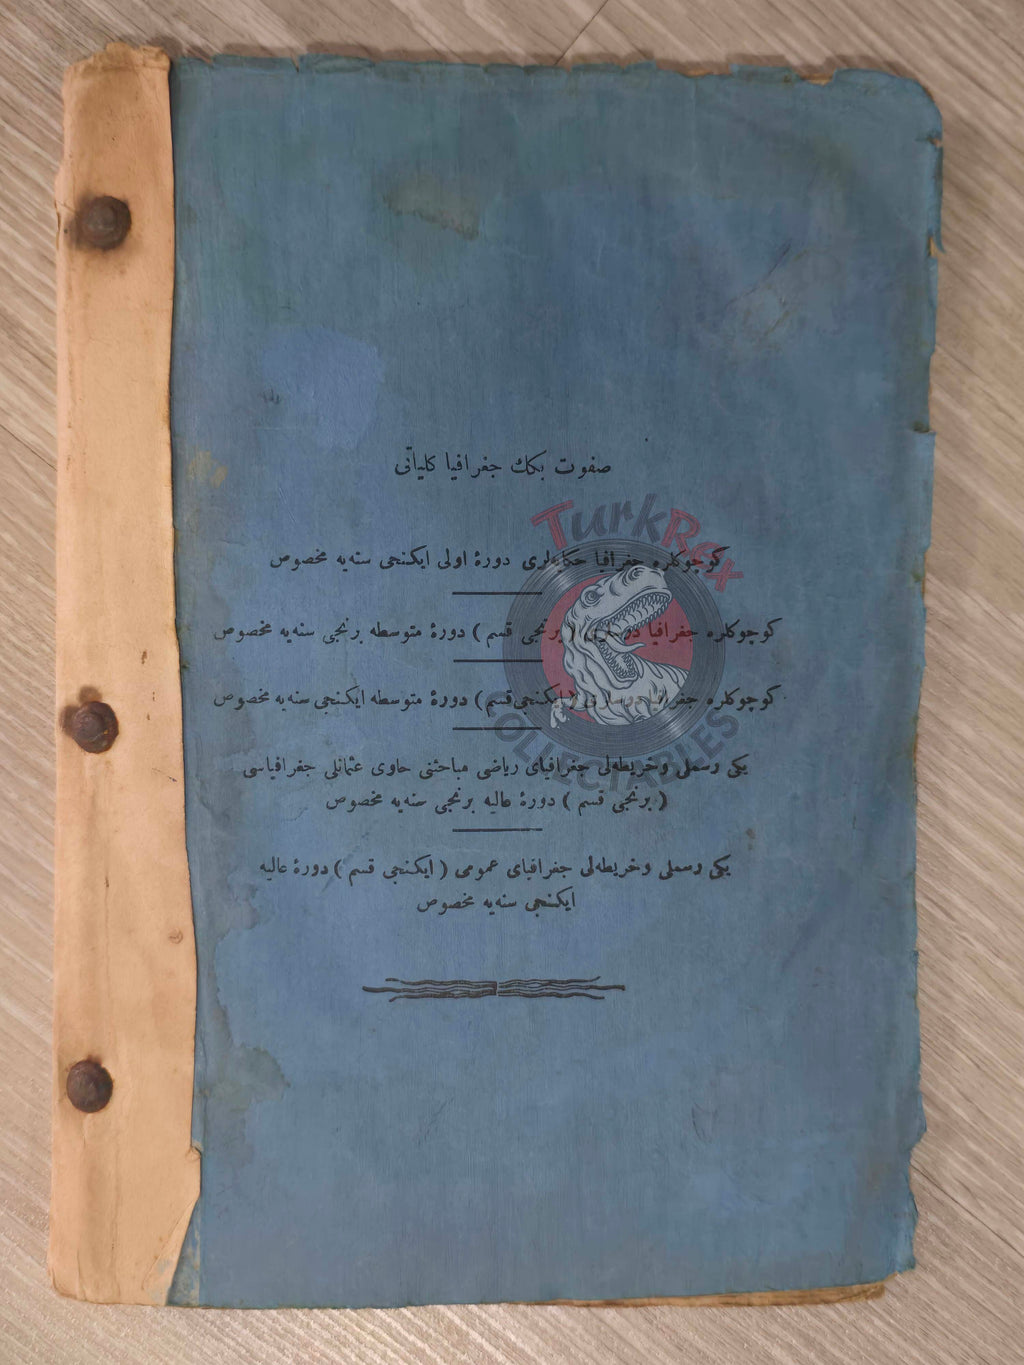 صفوت بكك جغرافيا كلياتی
TurkRex
كوچوكلره جغرافيا حكايه‌لری دورۀ اولی ايكنجی سنه‌يه مخصوص
كوچوكلره جغرافيا درسلری ( برنجی قسم ) دورۀ متوسطه برنجی سنه‌يه مخصوص
كوچوكلره جغرافيا درسلری ( ايكنجی قسم ) دورۀ متوسطه ايكنجی سنه‌يه مخصوص
COLLECTABLES
يكی رسملی وخريطه‌لی جغرافيای رياضی مباحثنی حاوی عثمانلی جغرافياسی
( برنجی قسم ) دورۀ عاليه برنجی سنه‌يه مخصوص
يكی رسملی وخريطه‌لی جغرافيای عمومی ( ايكنجی قسم ) دورۀ عاليه
ايكنجی سنه‌يه مخصوص